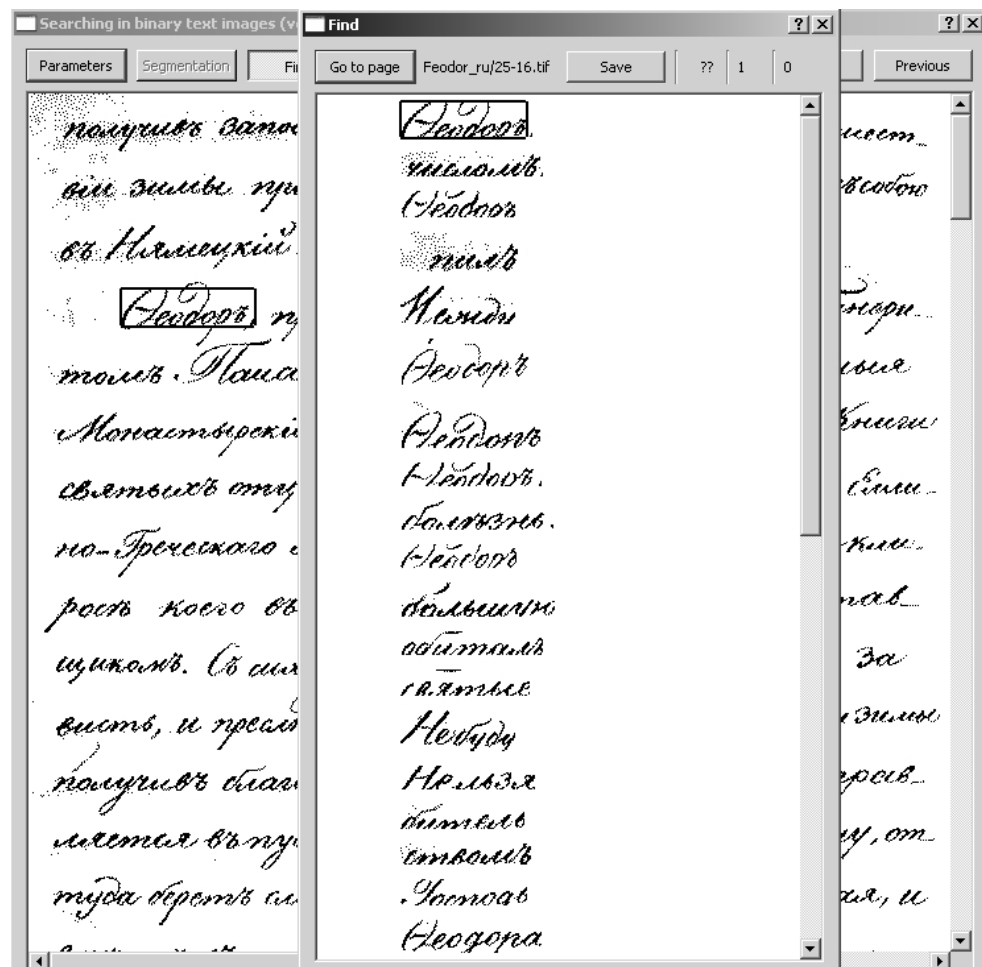 Searching in binary text images (ve
Parameters Segmentation Fi
получивъ запо
віи зимы пр
въ Нямецкій
Ѳеодоръ, п
томъ. Паи
Монастырскі
святыхъ отц
но-Греческаго
рость коего въ
щикомъ. Съ
висть, и преслѣ
получивъ благ
ляется въ пу
туда беретъ сл
Find
Go to page Feodor_ru/25-16.tif Save ?? 1 0
Ѳеодоръ.
числомъ.
Ѳеодоръ
пилъ
Между
Ѳеодоръ
Ѳеодоръ
Ѳеодоръ.
болѣзнь.
Ѳеодоръ
большую
обиталъ
святые
Небуду
Нельзя
битель
ствомъ
Господь
Ѳеодора
Previous
шест-
собою
ныя
Книги
Елли-
кли-
тав-
За
зимы
прав-
у, от-
ая, и